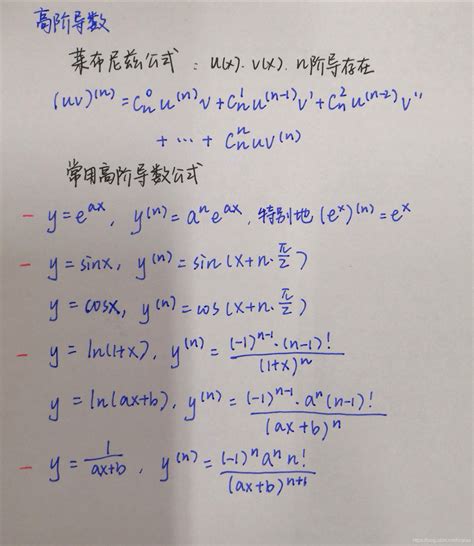 高阶导数
莱布尼兹公式 : u(x). v(x). n阶导存在
(uv)⁽ⁿ⁾ = Cₙ⁰ u⁽ⁿ⁾ v + Cₙ¹ u⁽ⁿ⁻¹⁾ v' + Cₙ² u⁽ⁿ⁻²⁾ v''
+ ⋯ + Cₙⁿ u v⁽ⁿ⁾
常用高阶导数公式
– y = eᵃˣ, y⁽ⁿ⁾ = aⁿ eᵃˣ, 特别地 (eˣ)⁽ⁿ⁾ = eˣ
– y = sinx, y⁽ⁿ⁾ = sin(x + n·π/2)
y = cosx, y⁽ⁿ⁾ = cos(x + n·π/2)
– y = ln(1+x), y⁽ⁿ⁾ = (-1)ⁿ⁻¹·(n-1)! / (1+x)ⁿ
y = ln(ax+b), y⁽ⁿ⁾ = (-1)ⁿ⁻¹·aⁿ(n-1)! / (ax+b)ⁿ
– y = 1/(ax+b), y⁽ⁿ⁾ = (-1)ⁿ aⁿ n! / (ax+b)ⁿ⁺¹